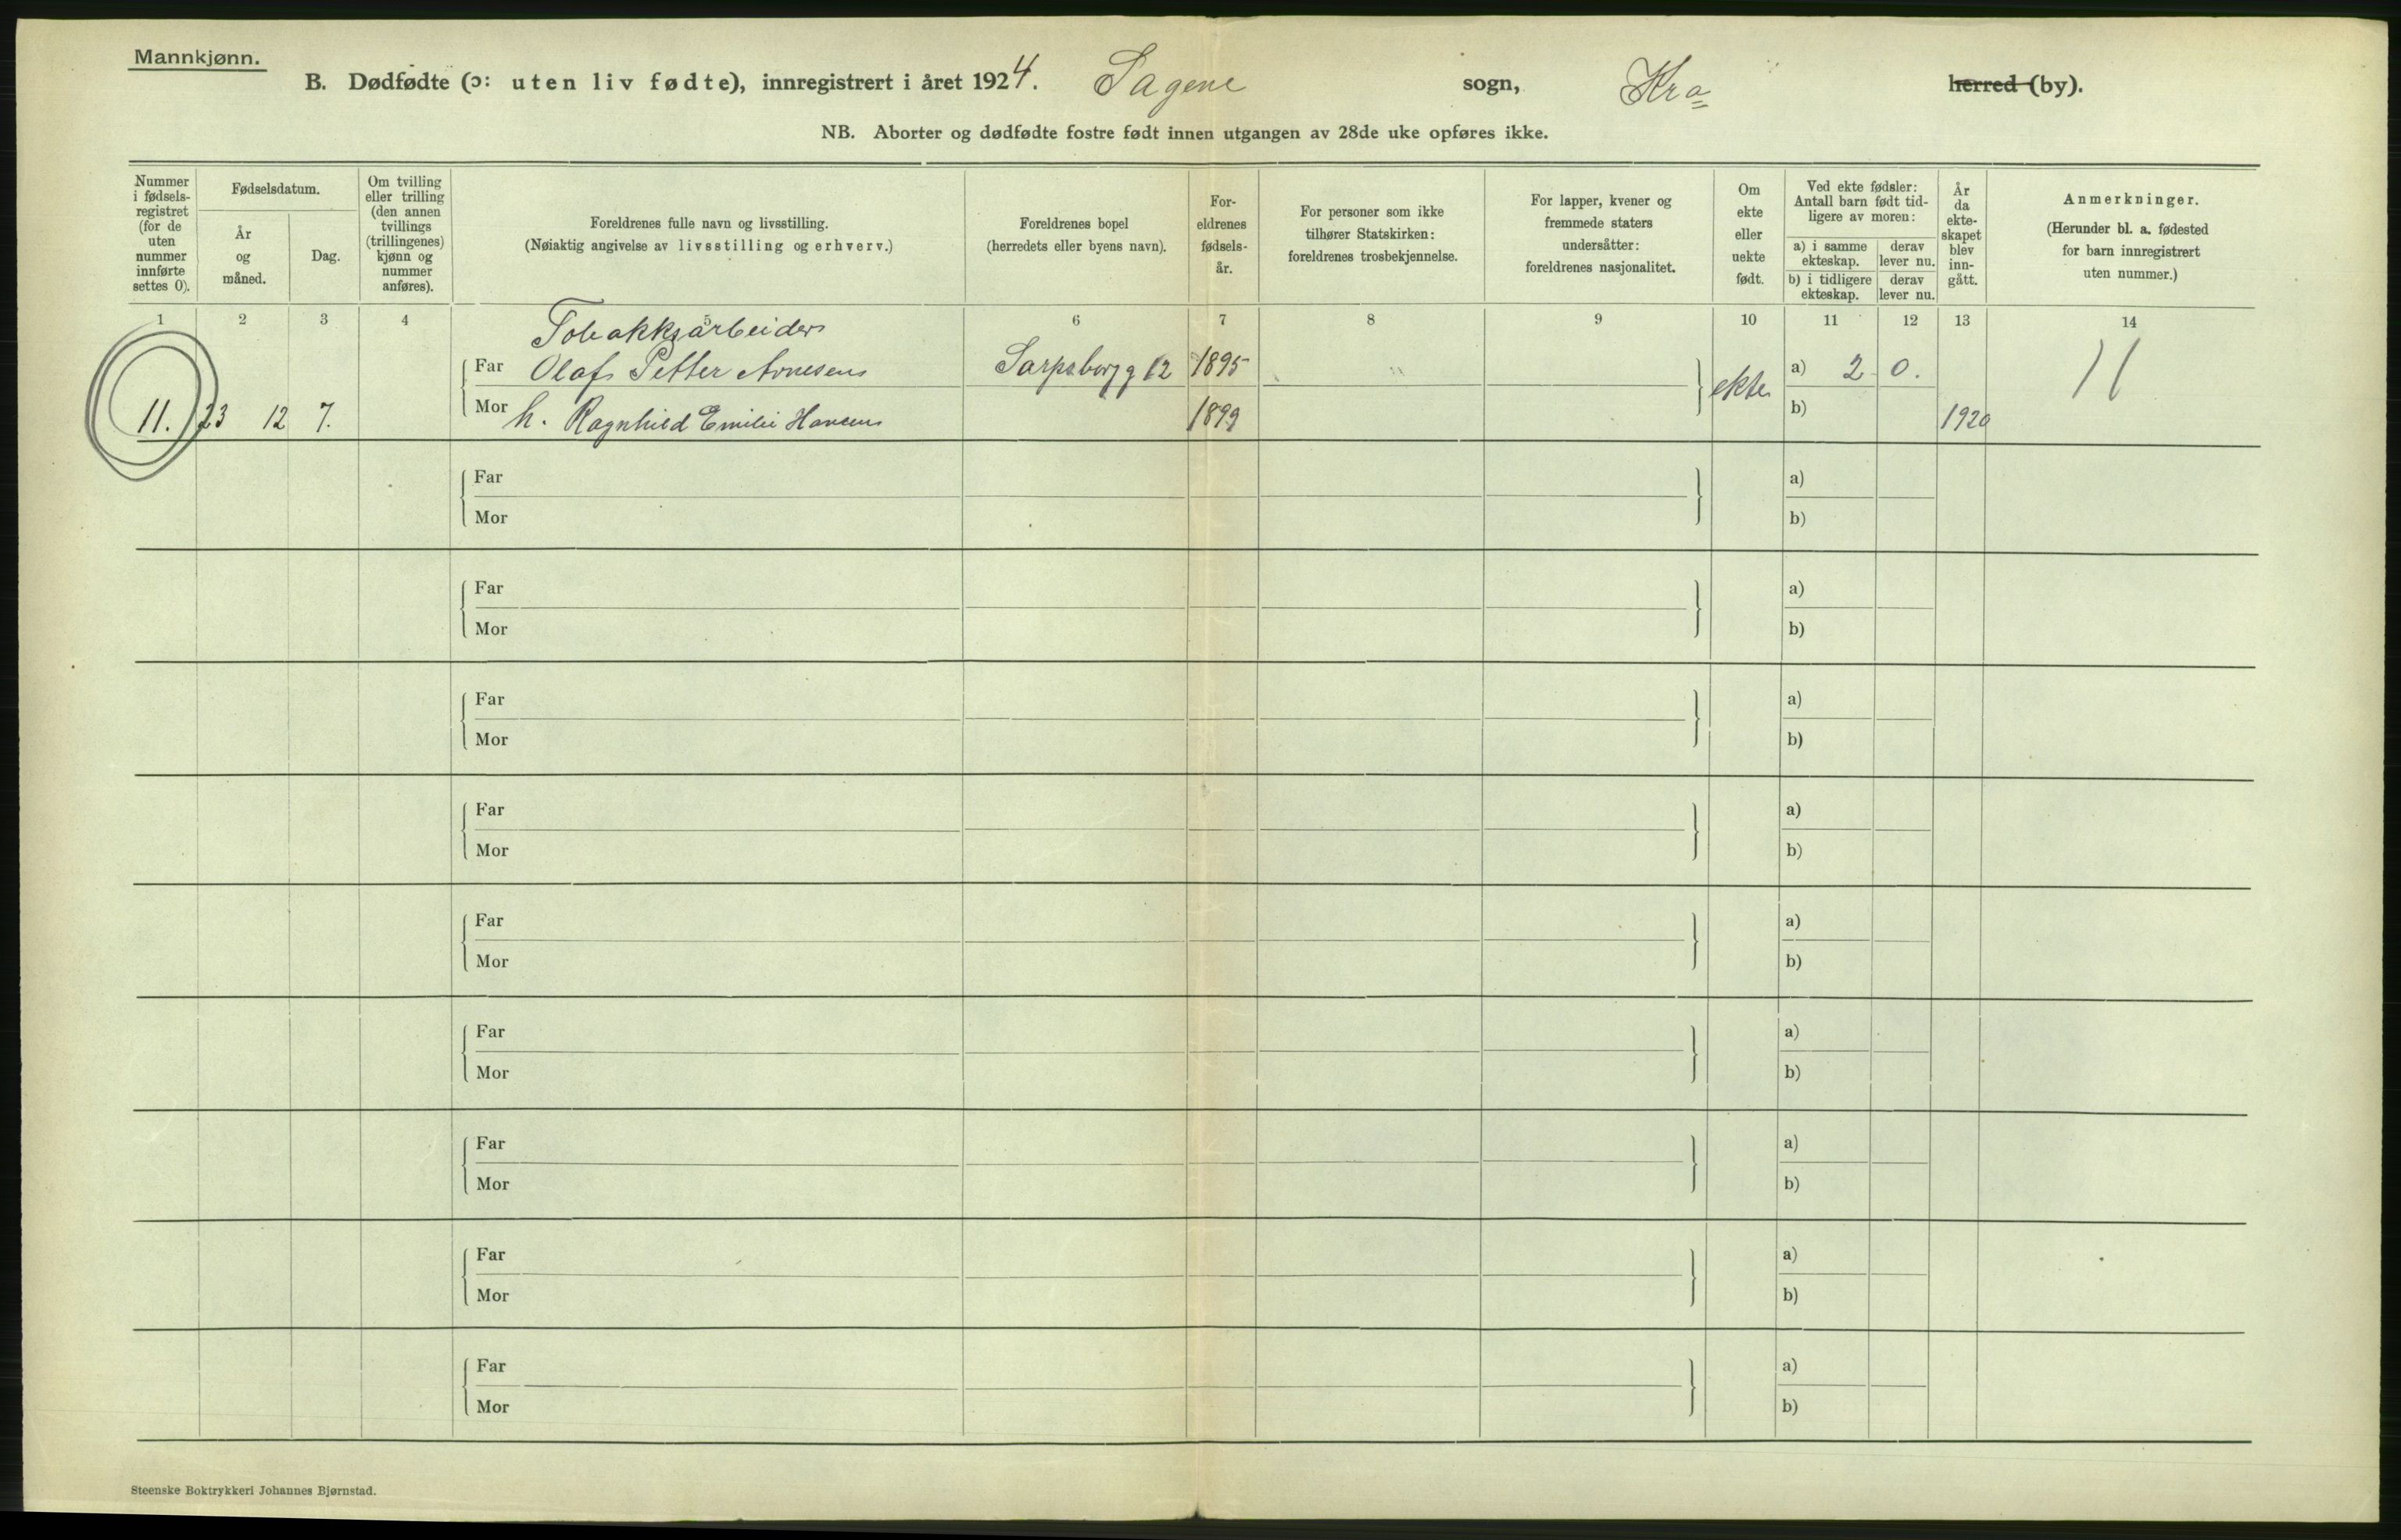 Mannkjønn.
B. Dødfødte (ɔ: uten liv fødte), innregistrert i året 1924. Sagene sogn, Kra herred (by).
NB. Aborter og dødfødte fostre født innen utgangen av 28de uke opføres ikke.
Nummer i fødsels-registret (for de uten nummer innførte settes 0).
Fødselsdatum.
År og måned.
Dag.
Om tvilling eller trilling (den annen tvillings (trillingenes) kjønn og nummer anføres).
Foreldrenes fulle navn og livsstilling.
(Nøiaktig angivelse av livsstilling og erhverv.)
Foreldrenes bopel
(herredets eller byens navn).
For-eldrenes fødsels-år.
For personer som ikke tilhører Statskirken: foreldrenes trosbekjennelse.
For lapper, kvener og fremmede staters undersåtter: foreldrenes nasjonalitet.
Om ekte eller uekte født.
Ved ekte fødsler: Antall barn født tid-ligere av moren:
a) i samme ekteskap.
derav lever nu.
b) i tidligere ekteskap.
derav lever nu.
År da ekte-skapet blev inn-gått.
Anmerkninger.
(Herunder bl. a. fødested for barn innregistrert uten nummer.)
1 2 3 4 5 6 7 8 9 10 11 12 13 14
Tobakksarbeider
Far Olaf Petter Arnesen Sarpsborgg 12 1895 ekte a) 2 0. 11
11. 23 12 7. Mor h. Ragnhild Emilie Hansen 1899 b) 1920
Far a)
Mor b)
Far a)
Mor b)
Far a)
Mor b)
Far a)
Mor b)
Far a)
Mor b)
Far a)
Mor b)
Far a)
Mor b)
Far a)
Mor b)
Far a)
Mor b)
Steenske Boktrykkeri Johannes Bjørnstad.